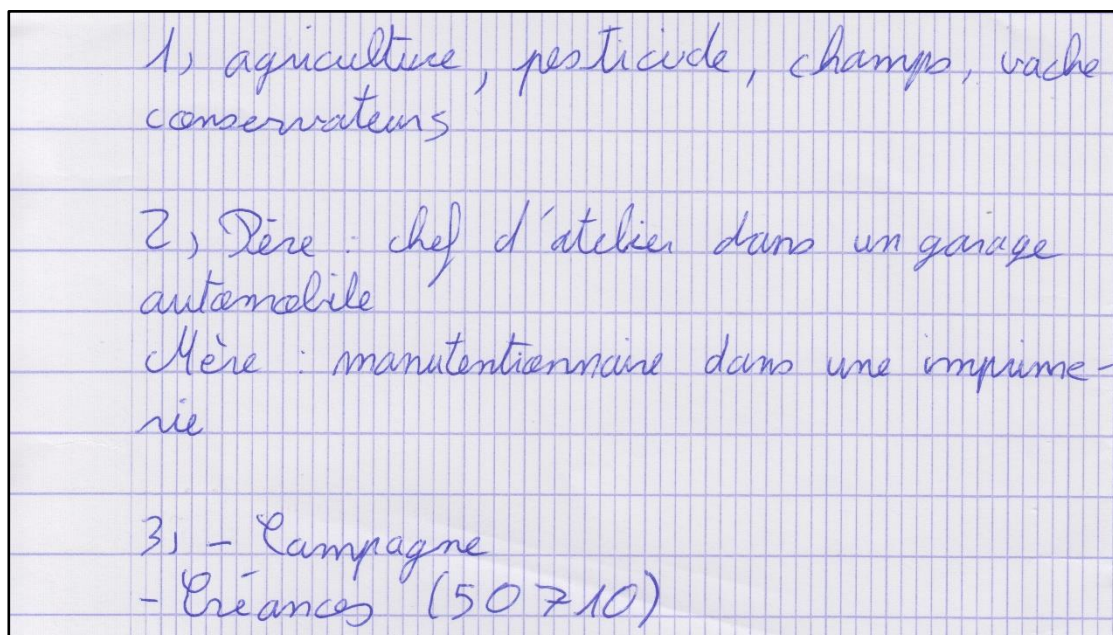 1) agriculture, pesticide, champs, vache
conservateurs
2) Père : chef d'atelier dans un garage
automobile
Mère : manutentionnaire dans une imprime-
rie
3) - Campagne
- Créances (50710)